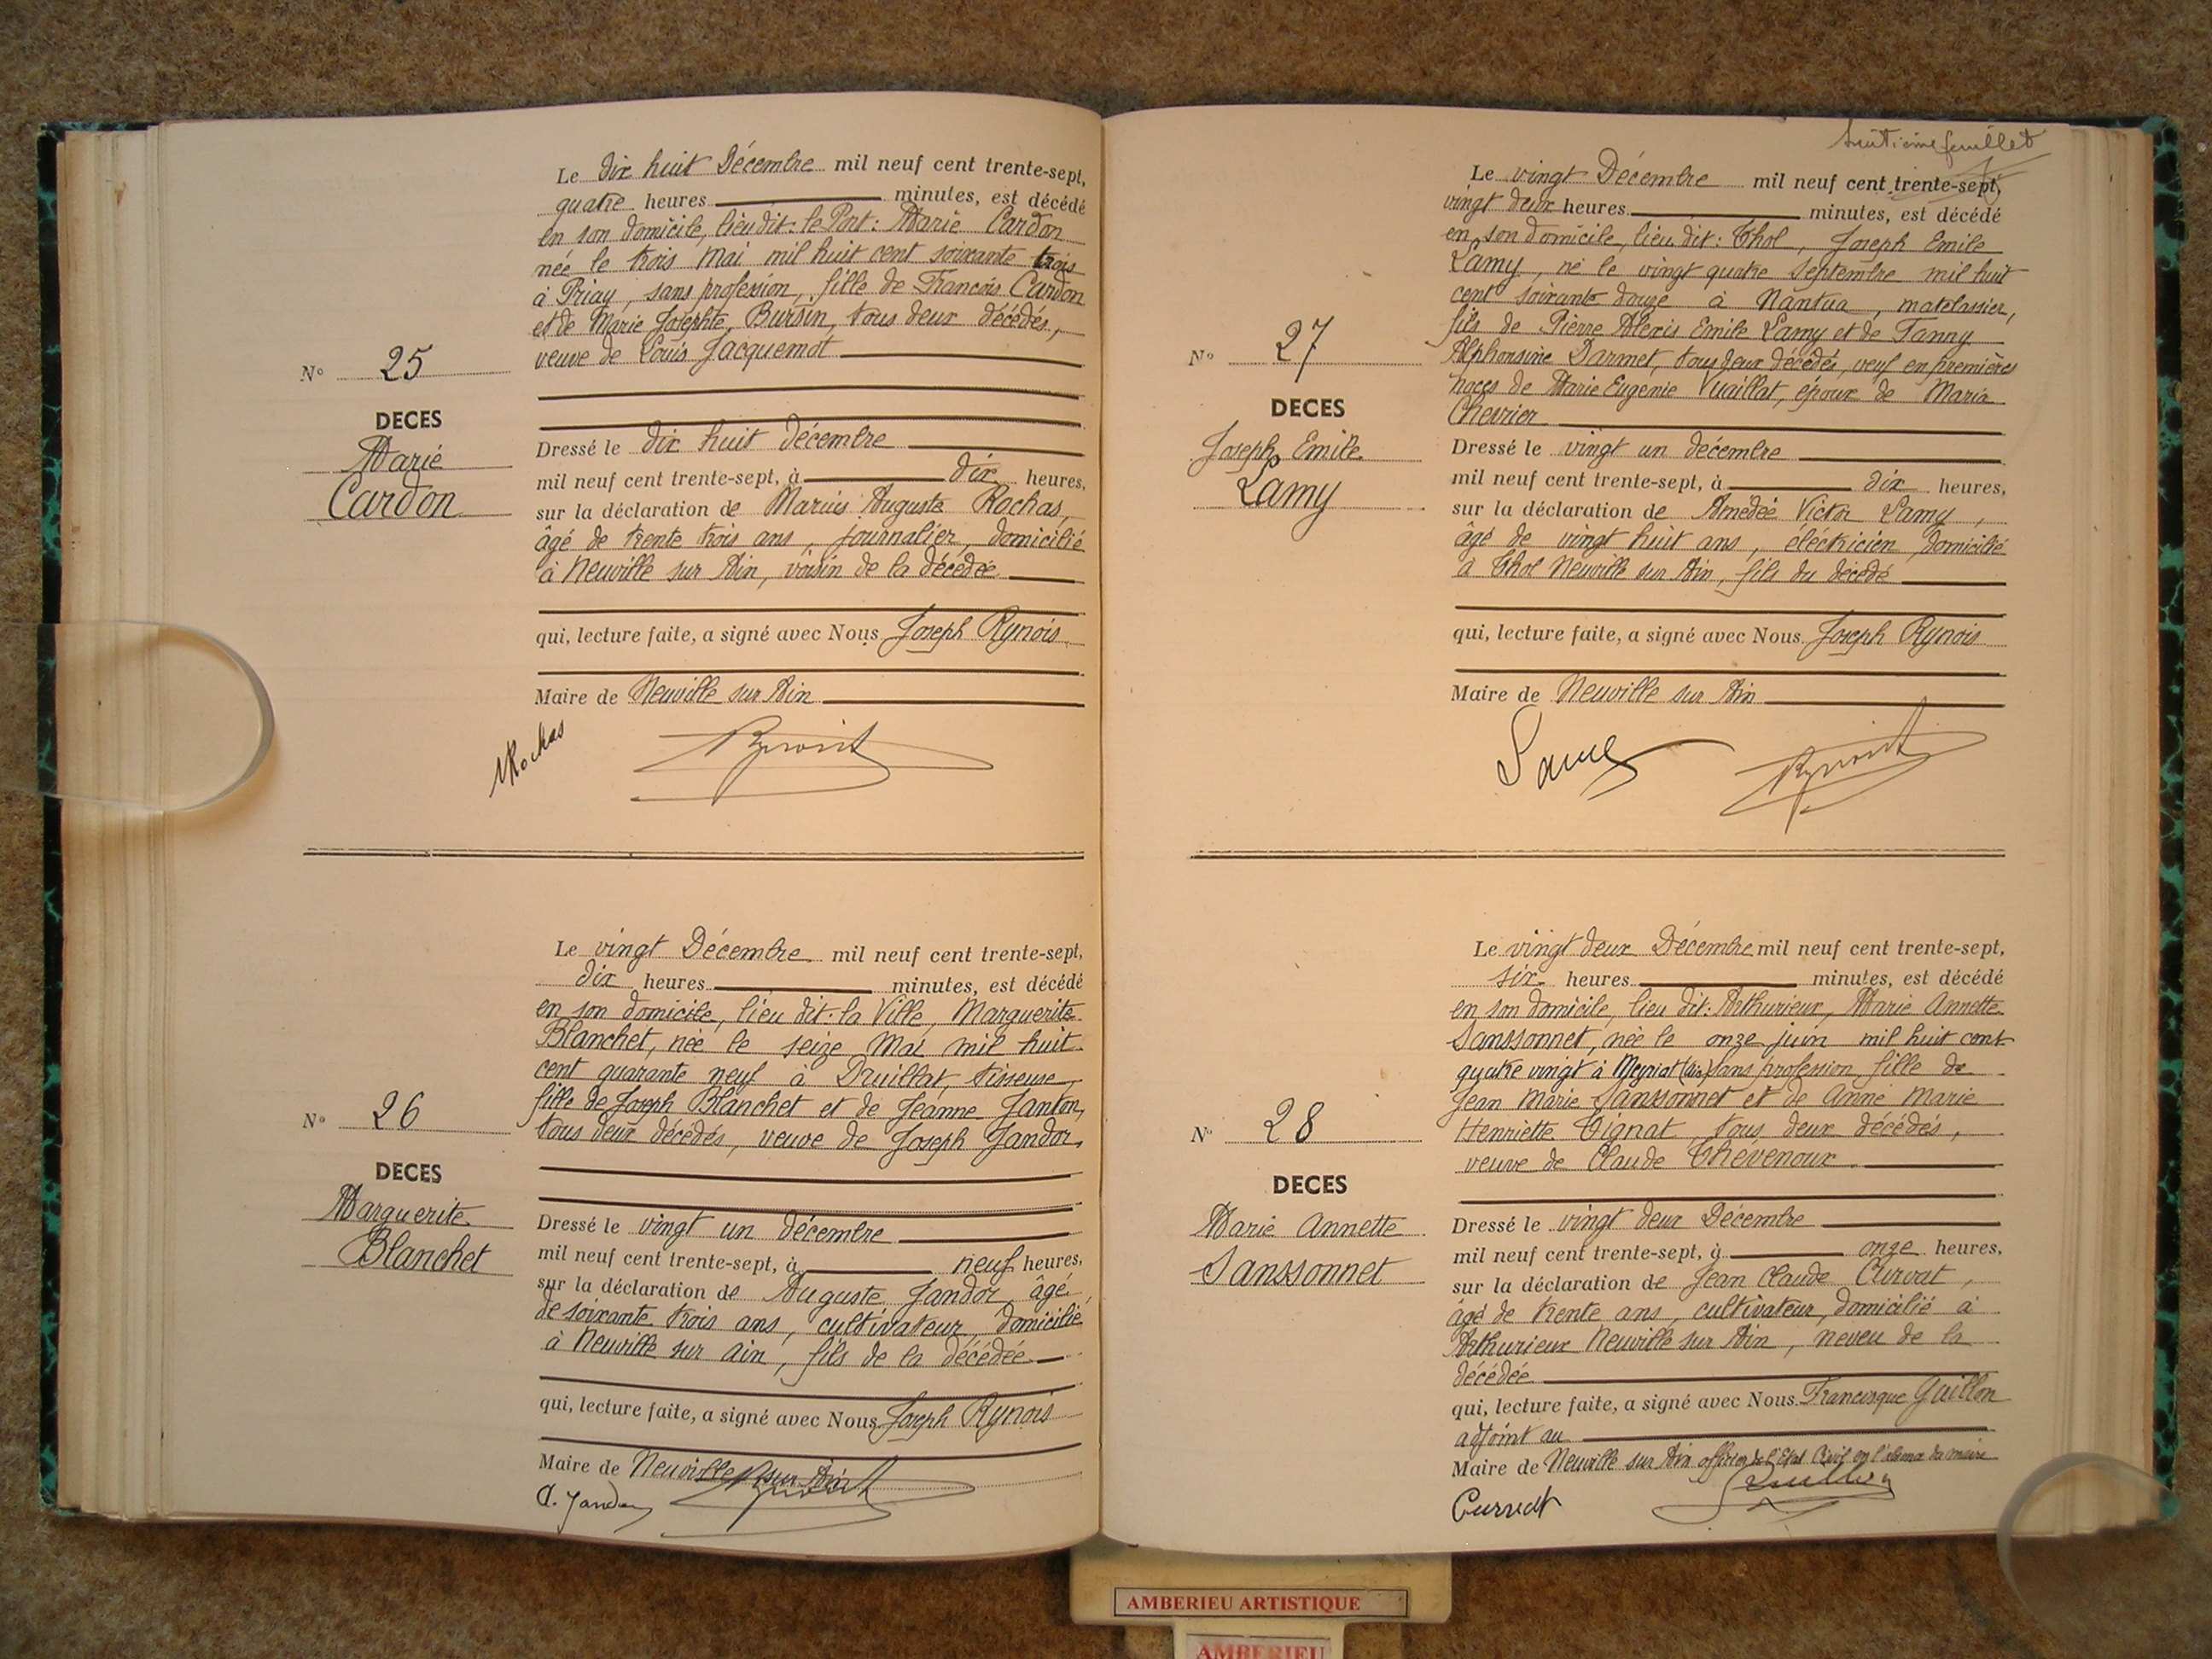 Le dix huit Décembre mil neuf cent trente-sept,
quatre heures minutes, est décédé
en son domicile, lieu dit: le Port: Marie Cardon
née le trois Mai mil huit cent soixante trois
à Priay, sans profession, fille de François Cardon
et de Marie Josephte, Bursin, tous deux décédés,
veuve de Louis Jacquemot
No 25
DECES
Marie
Cardon
Dressé le dix huit décembre
mil neuf cent trente-sept, à dix heures,
sur la déclaration de Marius Auguste Rochas,
âgé de trente trois ans, journalier, domicilié
à Neuville sur Ain, voisin de la décédée
qui, lecture faite, a signé avec Nous Joseph Rynois
Maire de Neuville sur Ain
Rochas
Le vingt Décembre mil neuf cent trente-sept,
dix heures minutes, est décédé
en son domicile, lieu dit: la Ville, Marguerite
Blanchet, née le seize Mai mil huit
cent quarante neuf à Druillat, tisseuse,
fille de Joseph Blanchet et de Jeanne Janton,
tous deux décédés, veuve de Joseph Jandor,
No 26
DECES
Marguerite
Blanchet
Dressé le vingt un décembre
mil neuf cent trente-sept, à neuf heures,
sur la déclaration de Auguste Jandor, âgé
de soixante trois ans, cultivateur, domicilié
à Neuville sur Ain, fils de la décédée
qui, lecture faite, a signé avec Nous Joseph Rynois
Maire de Neuville sur Ain
huitième feuillet
Le vingt Décembre mil neuf cent trente-sept,
vingt deux heures minutes, est décédé
en son domicile, lieu dit: Thol, Joseph Emile
Lamy, né le vingt quatre Septembre mil huit
cent soixante douze à Nantua, matelassier,
fils de Pierre Alexis Emile Lamy et de Fanny
Alphonsine Darmet, tous deux décédés, veuf en premières
noces de Marie Eugenie Vuaillat, époux de Maria
Chevrier
No 27
DECES
Joseph Emile
Lamy
Dressé le vingt un décembre
mil neuf cent trente-sept, à dix heures,
sur la déclaration de Amedée Victor Lamy,
âgé de vingt huit ans, éléctricien, domicilié
à Thol Neuville sur Ain, fils du décédé
qui, lecture faite, a signé avec Nous Joseph Rynois
Maire de Neuville sur Ain
Lamy
Le vingt deux Décembre mil neuf cent trente-sept,
six heures minutes, est décédé
en son domicile, lieu dit: Arthurieux, Marie Annette
Sanssonnet, née le onze juin mil huit cent
quatre vingt à Meyriat (Ain) sans profession, fille de
Jean Marie Sanssonnet et de Anne Marie
Henriette Tignat, tous deux décédés,
veuve de Claude Thevenoux.
No 28
DECES
Marie Annette
Sanssonnet
Dressé le vingt deux Décembre
mil neuf cent trente-sept, à onze heures,
sur la déclaration de Jean Claude Curvat,
âgé de trente ans, cultivateur, domicilié à
Arthurieux Neuville sur Ain, neveu de la
décédée
qui, lecture faite, a signé avec Nous Francisque Guillon
adjoint au
Maire de Neuville sur Ain officier de l'Etat Civil en l'absence du maire
Curvat
AMBERIEU ARTISTIQUE
AMBERIEU